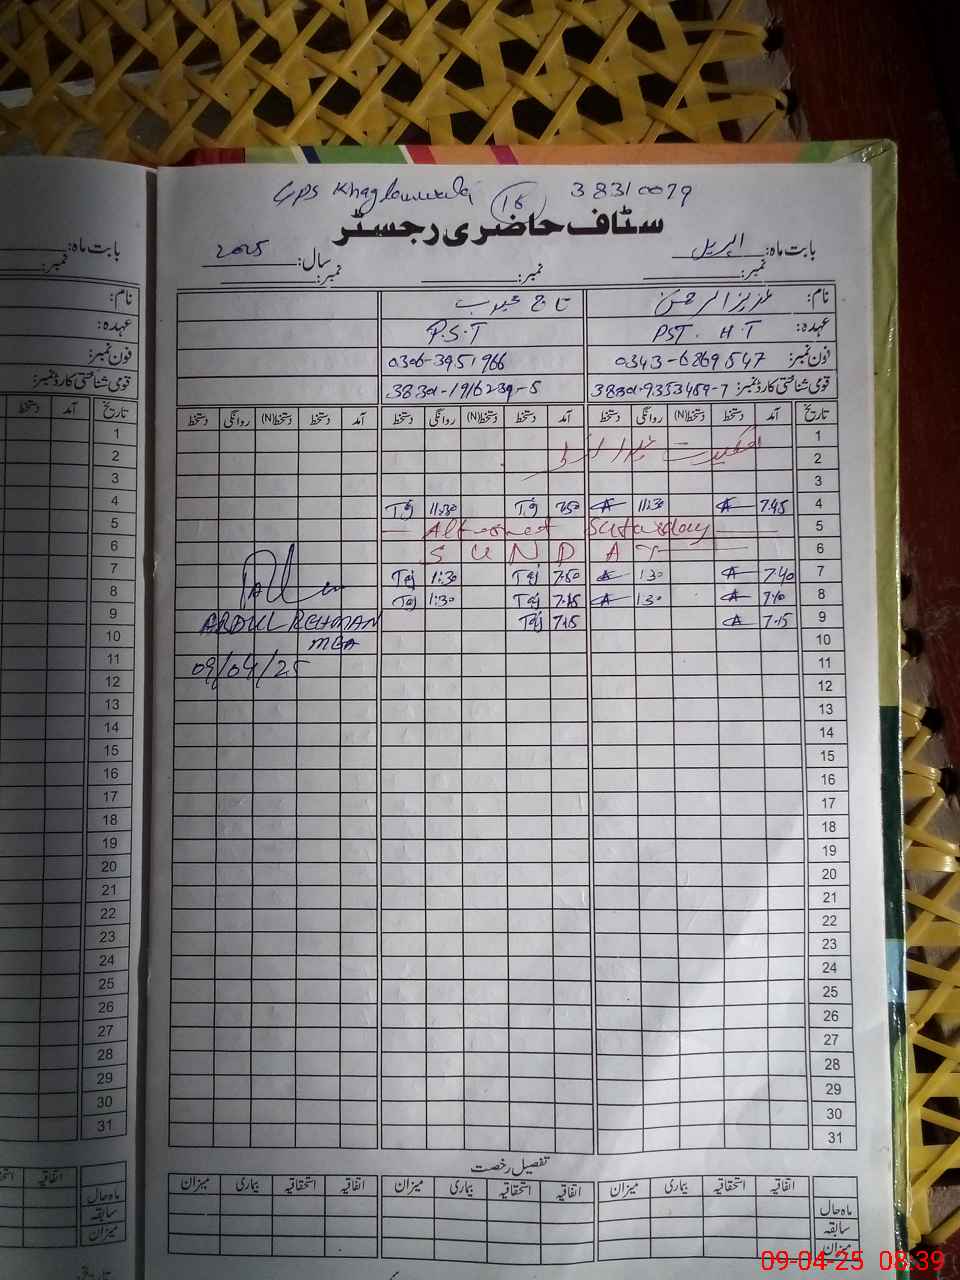 GPS Khaglanwala (16) 38310079
سٹاف حاضری رجسٹر
بابت ماہ: اپریل سال: 2025
نمبر: نمبر: نمبر:
نام: عزیز الرحمن تاج محبوب
عہدہ: PST. H.T P.S.T
فون نمبر: 0343-6869547 0306-3951966
قومی شناختی کارڈ نمبر: 38301-9353459-7 38301-1916239-5
تاریخ آمد دستخط دستخط(N) روانگی دستخط آمد دستخط دستخط(N) روانگی دستخط آمد دستخط دستخط(N) روانگی دستخط
1
2
3
4 7.45 11:30 7.50 Taj 11:30 Taj
5 Alternet Saturday
6 S U N D A Y
7 7.40 1:30 7.50 Taj 1:30 Taj
8 7.10 1:30 7.15 Taj 1:30 Taj
9 7.15 7.15 Taj
ABDUL REHMAN
10 MEA
11 09/04/25
12
13
14
15
16
17
18
19
20
21
22
23
24
25
26
27
28
29
30
31
تفصیل رخصت
اتفاقیہ استحقاقیہ بیماری میزان اتفاقیہ استحقاقیہ بیماری میزان اتفاقیہ استحقاقیہ بیماری میزان
ماہ حال
سابقہ
میزان
بابت ماہ:
نمبر:
نام:
عہدہ:
فون نمبر:
قومی شناختی کارڈ نمبر:
تاریخ آمد دستخط
1
2
3
4
5
6
7
8
9
10
11
12
13
14
15
16
17
18
19
20
21
22
23
24
25
26
27
28
29
30
31
اتفاقیہ
ماہ حال
سابقہ
میزان
09-04-25 08:39